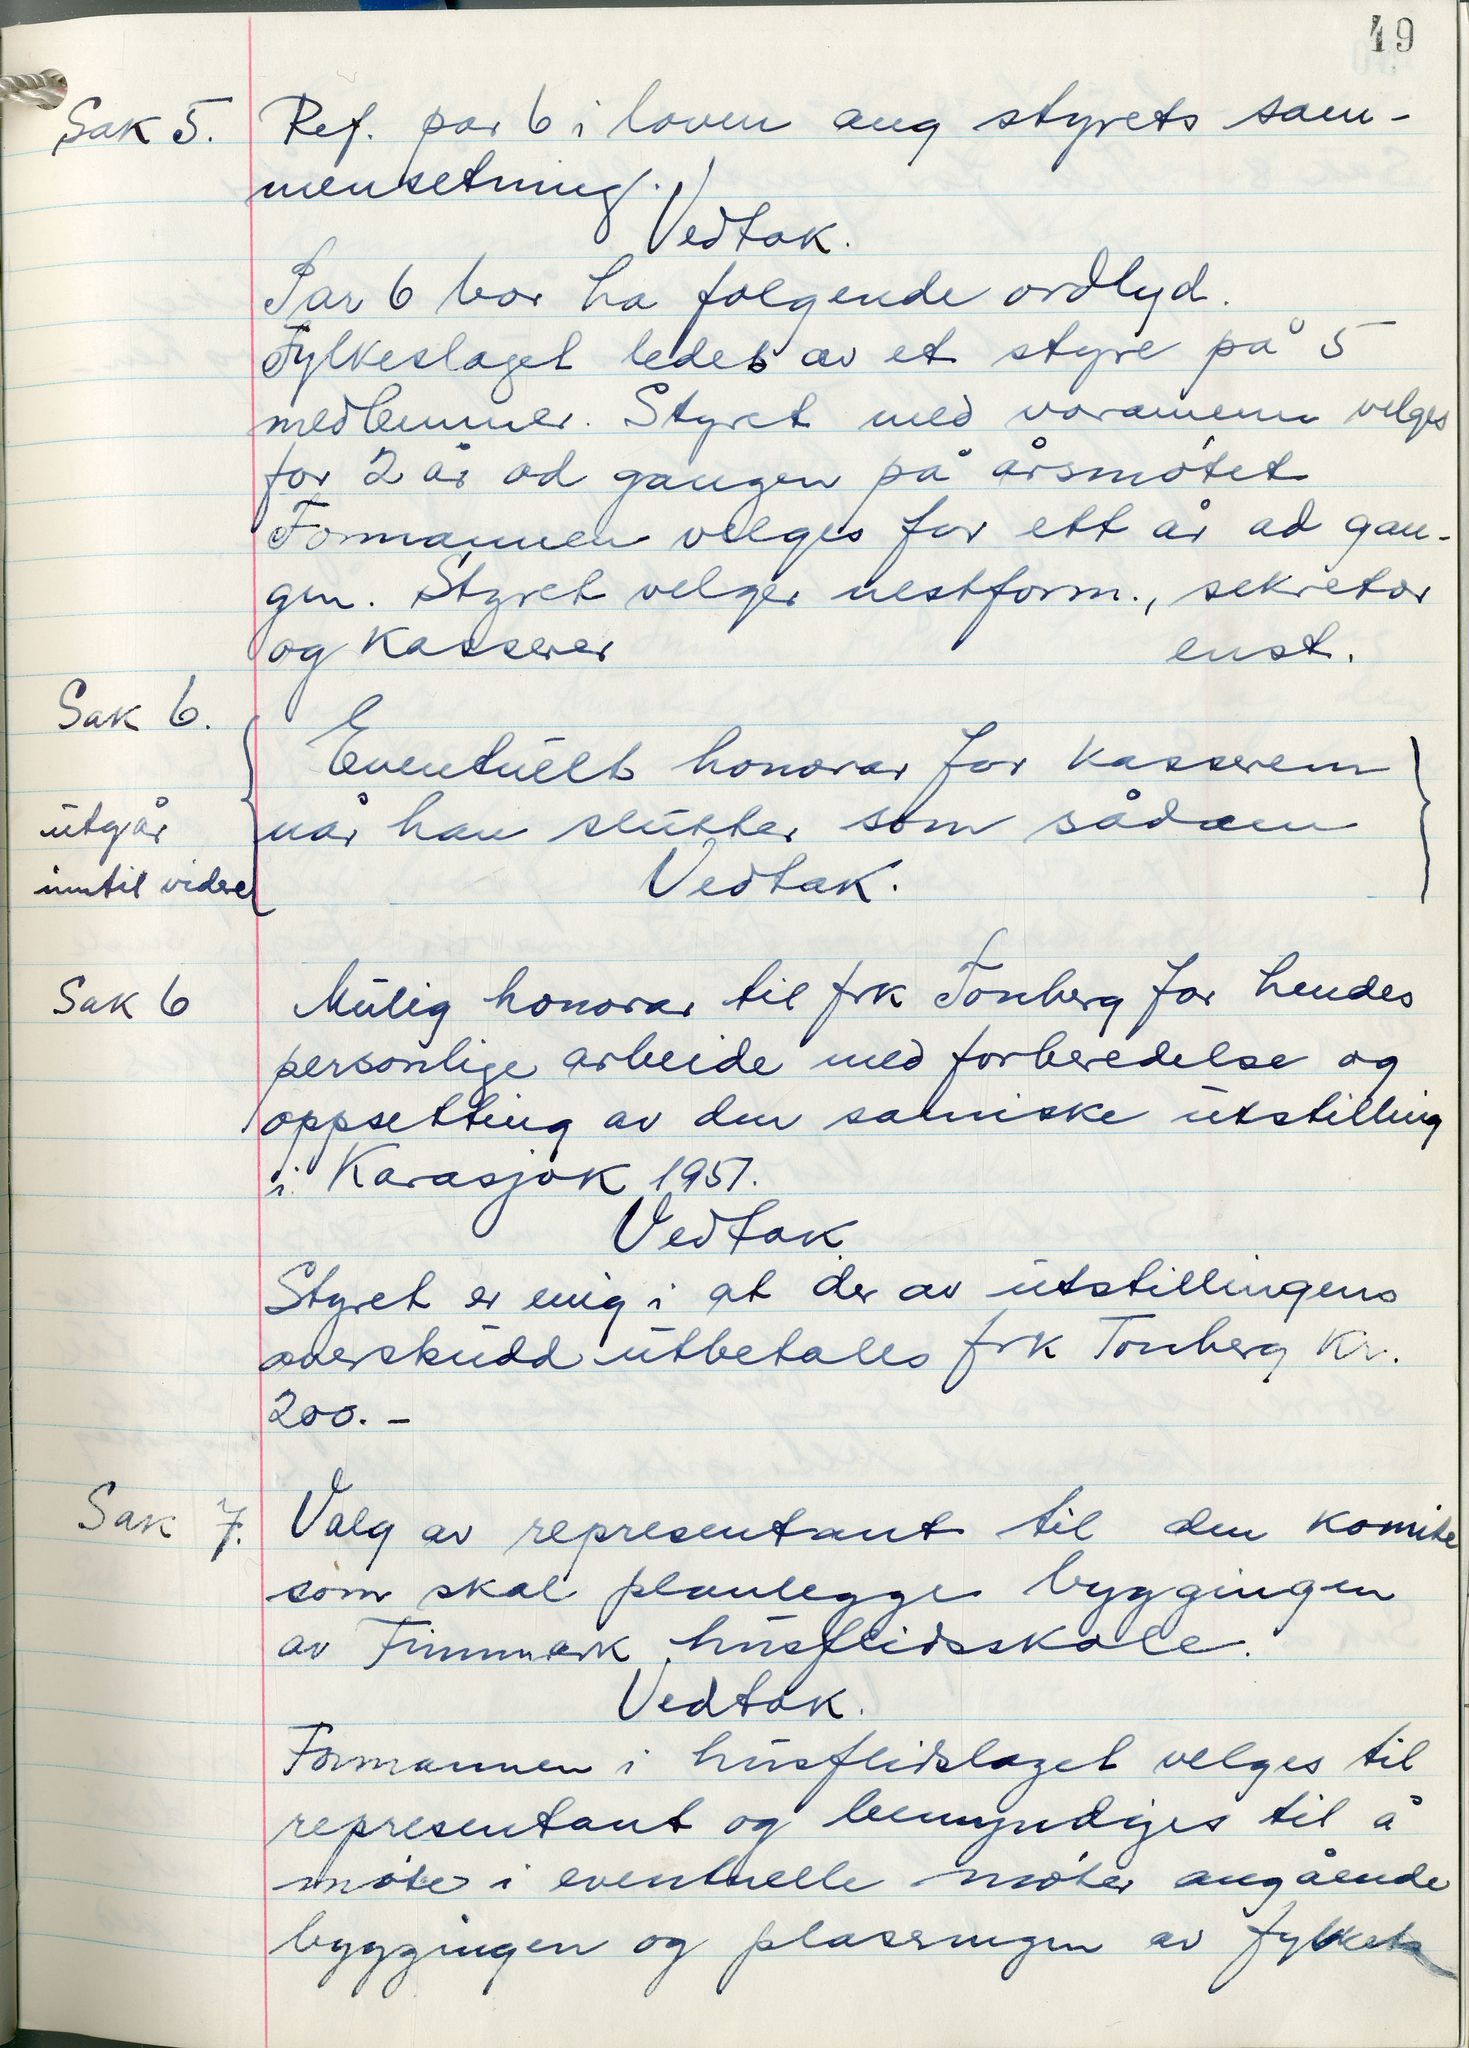 49
Sak 5. Ref. par 6 i loven ang styrets sam-
mensetning.
Vedtak.
Par 6 bør ha følgende ordlyd.
Fylkeslaget ledes av et styre på 5
medlemmer. Styret med varamenn velges
for 2 år ad gangen på årsmøtet
Formannen velges for ett år ad gan-
gen. Styret velger nestform., sekretær
og kasserer enst.
Sak 6.
Eventuelt honorar for kasseren
utgår når han slutter som sådann
inntil videre Vedtak.
Sak 6 Mulig honorar til frk Tonberg for hendes
personlige arbeide med forberedelse og
oppsetting av den samiske utstilling
i Karasjok 1951.
Vedtak
Styret er enig i at der av utstillingens
overskudd utbetales frk Tonberg Kr.
200.-
Sak 7. Valg av representant til den komite
som skal planlegge byggingen
av Finnmark husflidsskole.
Vedtak.
Formannen i husflidslaget velges til
representant og bemyndiges til å
møte i eventuelle møter angående
byggingen og plaseringen av fylkets